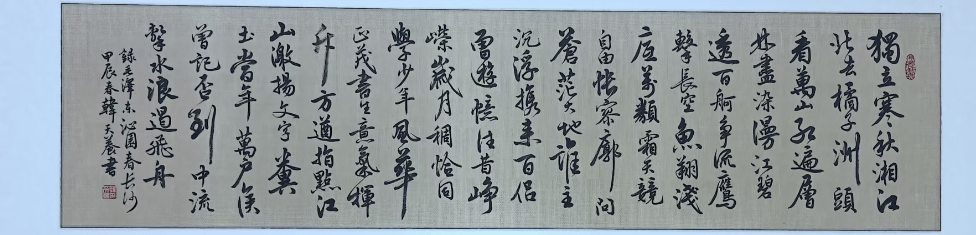 獨立寒秋湘江
北去橘子洲頭
看萬山紅遍層
林盡染漫江碧
透百舸爭流鷹
擊長空魚翔淺
底萬類霜天競
自由悵寥廓問
蒼茫大地誰主
沉浮攜來百侶
曾遊憶往昔崢
嶸歲月稠恰同
學少年風華
正茂書生意氣揮
斥方遒指點江
山激揚文字糞
土當年萬戶侯
曾記否到中流
擊水浪遏飛舟
錄毛澤東沁園春長沙
甲辰春韓天養書